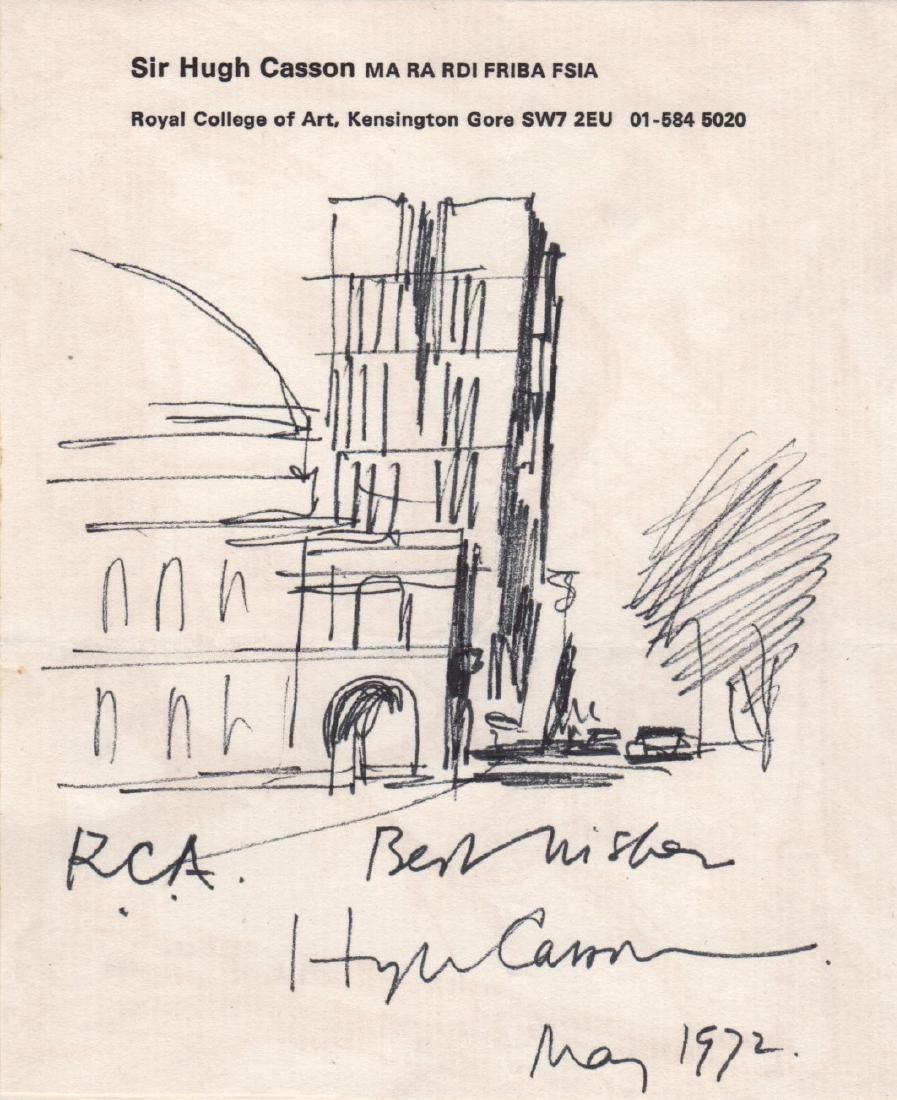 Sir Hugh Casson MA RA RDI FRIBA FSIA
Royal College of Art, Kensington Gore SW7 2EU 01-584 5020
RCA. Best wishes
Hugh Casson.
May 1972.